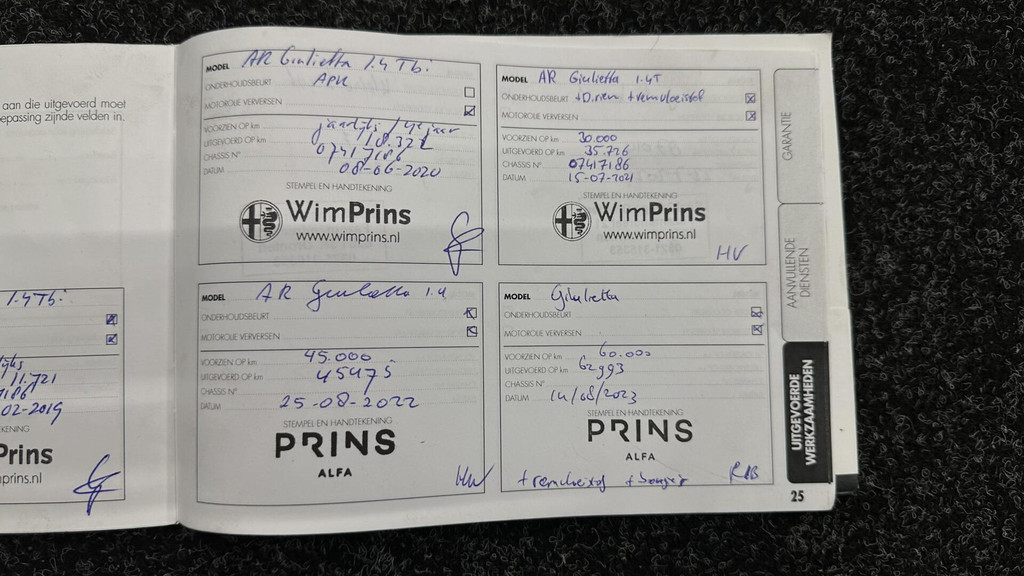 aan die uitgevoerd moet
epassing zijnde velden in.
1.4 Tbi
11.721
7186
02-2019
EKENING
Prins
prins.nl
MODEL AR Giulietta 1.4 Tbi
ONDERHOUDSBEURT APK
MOTOROLIE VERVERSEN
VOORZIEN OP km jaarlijks / 4e jaar
UITGEVOERD OP km 18.322
CHASSIS N° 07417186
DATUM 08-06-2020
STEMPEL EN HANDTEKENING
WimPrins
www.wimprins.nl
MODEL AR Giulietta 1.4T
ONDERHOUDSBEURT + D.riem + remvloeistof
MOTOROLIE VERVERSEN
VOORZIEN OP km 30.000
UITGEVOERD OP km 35.726
CHASSIS N° 07417186
DATUM 15-07-2021
STEMPEL EN HANDTEKENING
WimPrins
www.wimprins.nl
HV
MODEL AR Giulietta 1.4
ONDERHOUDSBEURT
MOTOROLIE VERVERSEN
VOORZIEN OP km 45.000
UITGEVOERD OP km 45475
CHASSIS N°
DATUM 25-08-2022
STEMPEL EN HANDTEKENING
PRINS
ALFA
HW
MODEL Giulietta
ONDERHOUDSBEURT
MOTOROLIE VERVERSEN
VOORZIEN OP km 60.000
UITGEVOERD OP km 62993
CHASSIS N°
DATUM 14/08/2023
STEMPEL EN HANDTEKENING
PRINS
ALFA
+ remvloeistof
GARANTIE
AANVULLENDE
DIENSTEN
UITGEVOERDE
WERKZAAMHEDEN
25